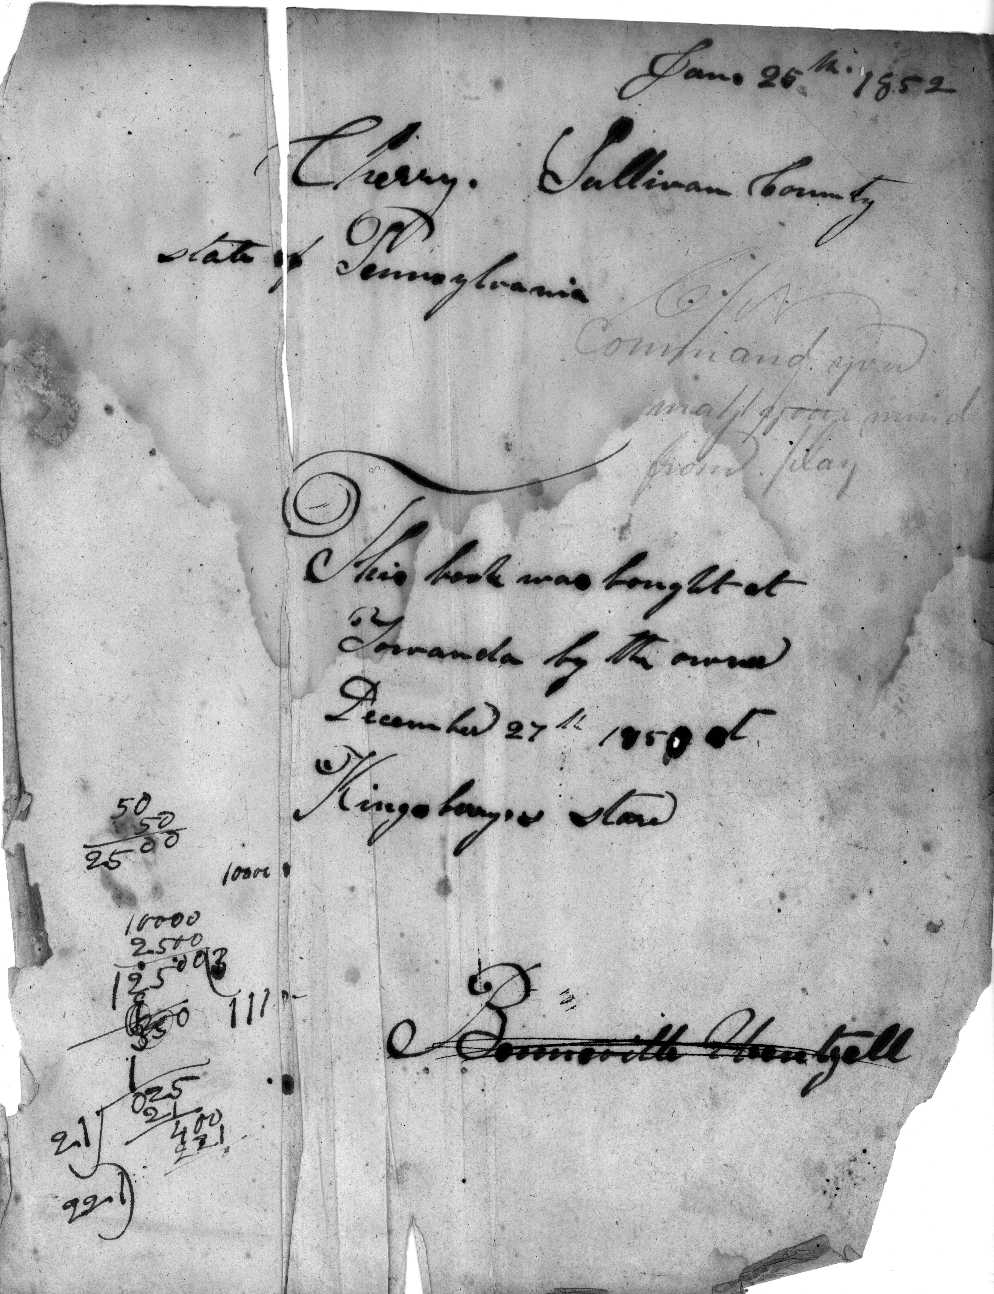 Jan. 25th. 1852
Cherry. Sullivan County
state of Pennsylvania
Command you
may your mind
from play
This book was bought at
Towanda by the owner
December 27th 1850 at
Kingsberry,s store
50
50
2500
10000
10000
2500
12500
111
Bonneville
025
21
21
400
221